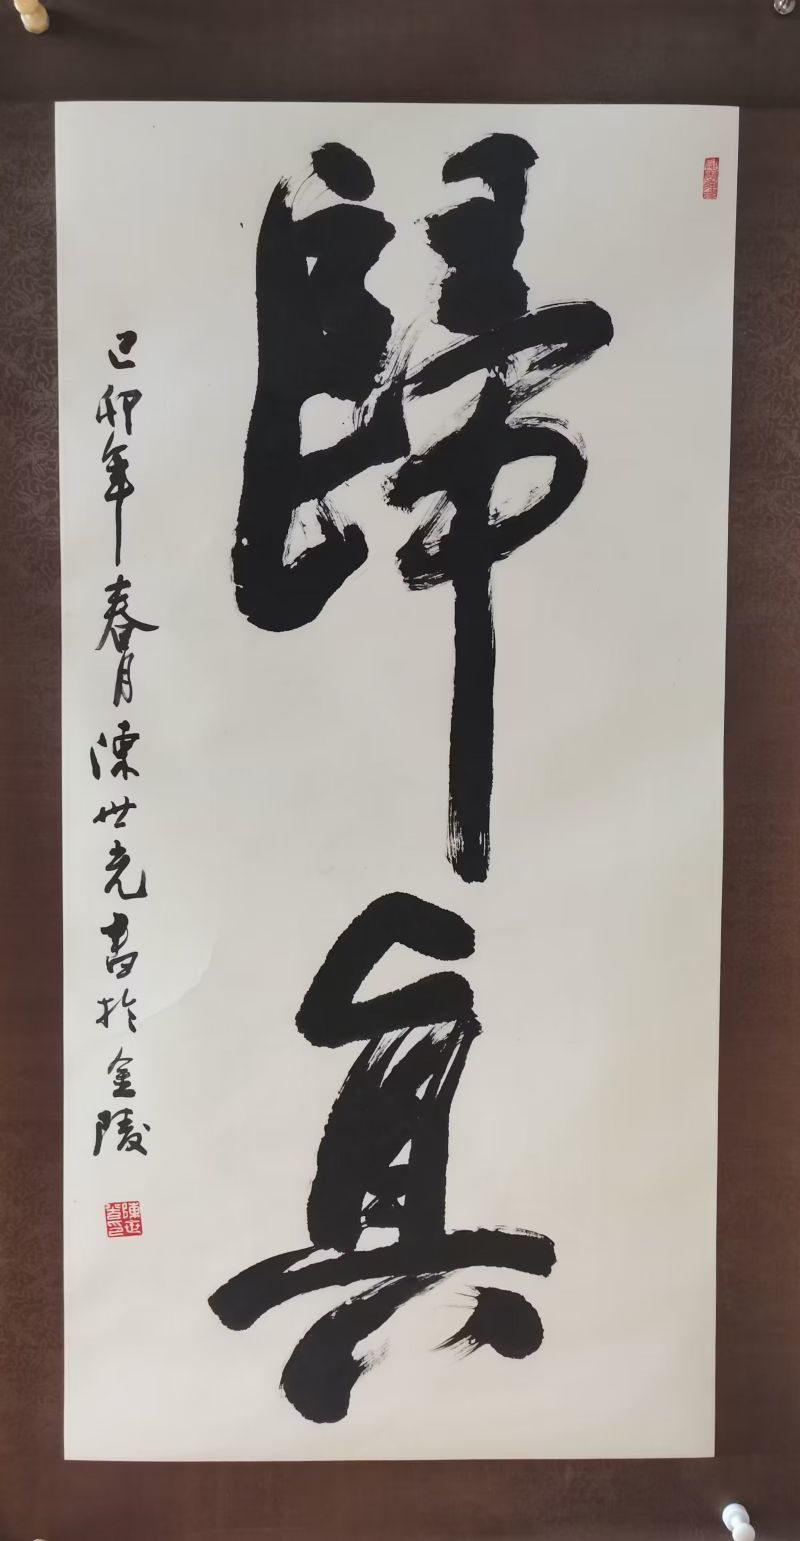 歸真
己卯年春月陳世光書於金陵